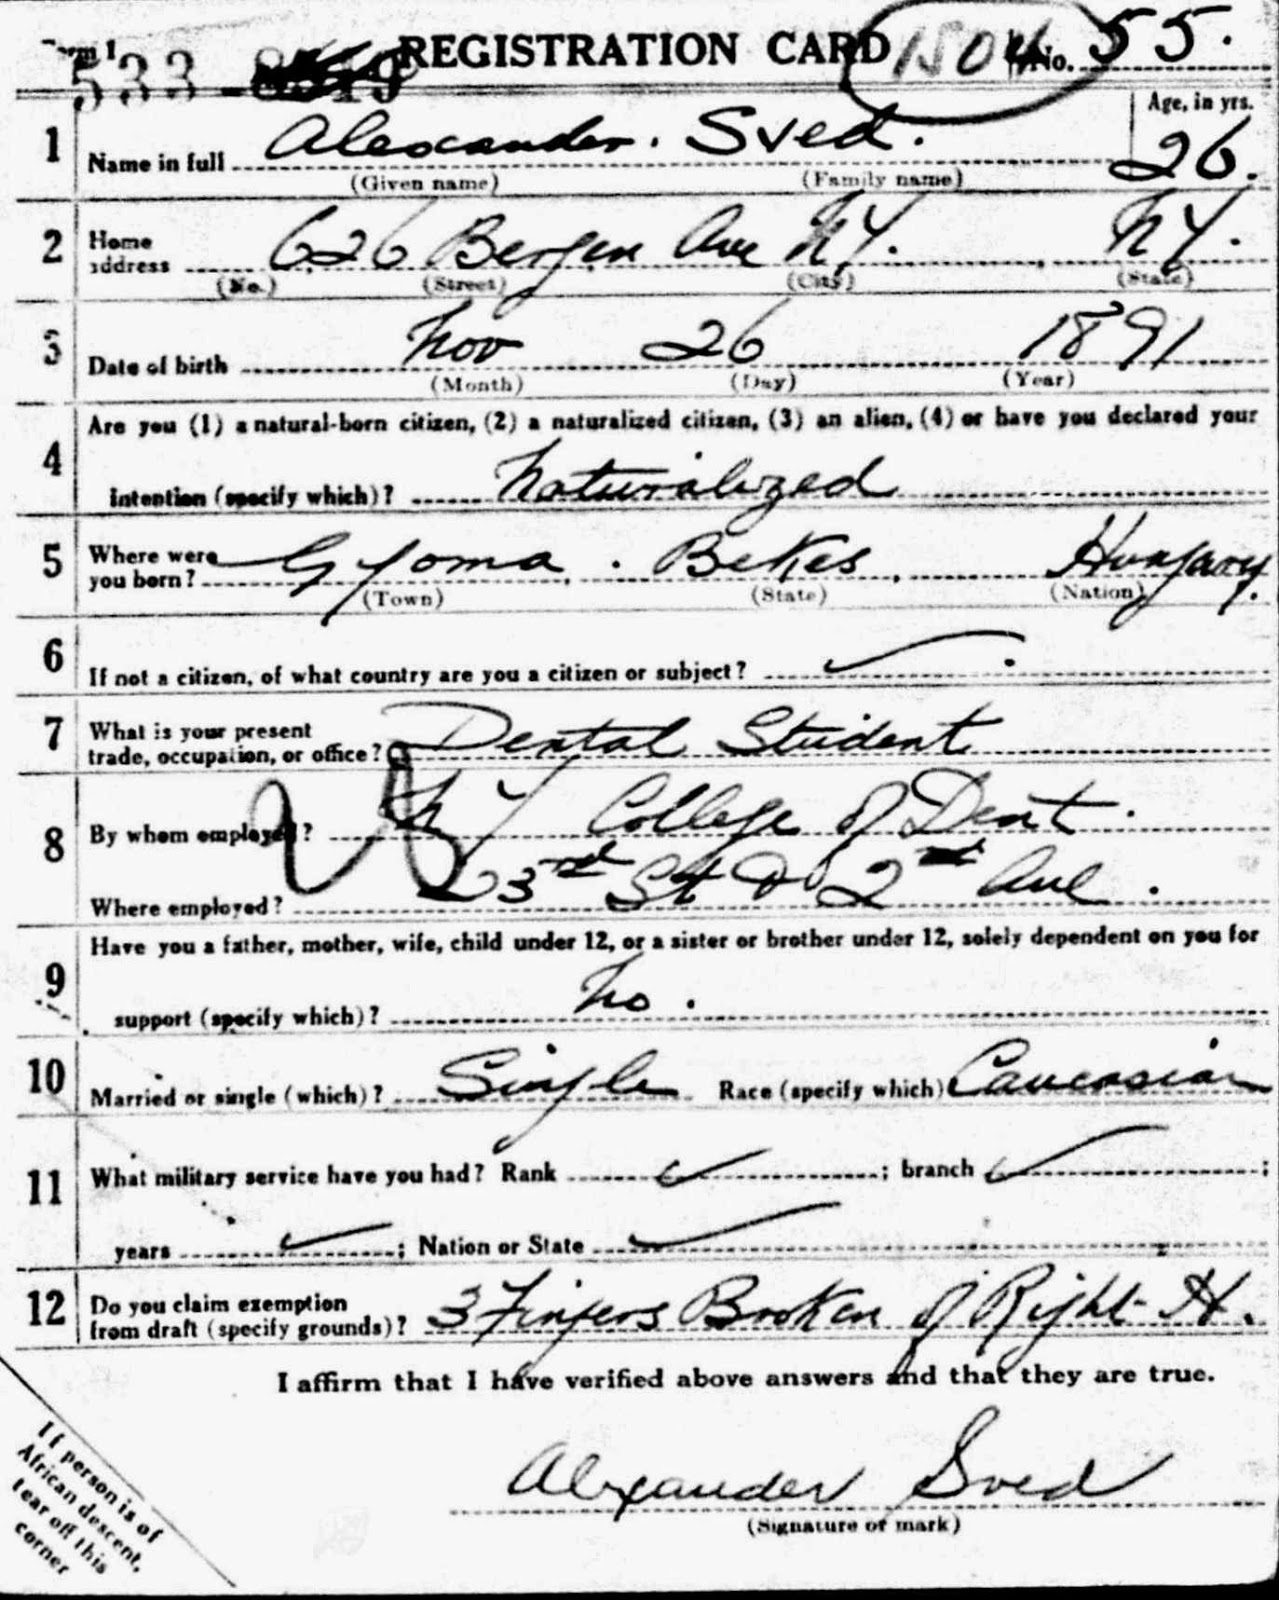 Form 1
533 REGISTRATION CARD 1504 No. 55.
1 Name in full Alexander. Sved. Age, in yrs. 26.
(Given name) (Family name)
2 Home address 626 Bergen Ave N Y. N Y.
(No.) (Street) (City) (State)
3 Date of birth Nov 26 1891
(Month) (Day) (Year)
4 Are you (1) a natural-born citizen, (2) a naturalized citizen, (3) an alien, (4) or have you declared your
intention (specify which)? Naturalized
5 Where were you born? Gyoma. Bekes, Hungary.
(Town) (State) (Nation)
6 If not a citizen, of what country are you a citizen or subject? ✓
7 What is your present
trade, occupation, or office? Dental Student
8 By whom employed? N Y College of Dent.
Where employed? 23rd St & 2nd Ave.
9 Have you a father, mother, wife, child under 12, or a sister or brother under 12, solely dependent on you for
support (specify which)? No.
10 Married or single (which)? Single Race (specify which) Caucasian
11 What military service have you had? Rank ✓; branch ✓;
years ✓; Nation or State ✓
12 Do you claim exemption
from draft (specify grounds)? 3 Fingers Broken of Right H.
I affirm that I have verified above answers and that they are true.
Alexander Sved
(Signature or mark)
If person is of
African descent,
tear off this
corner